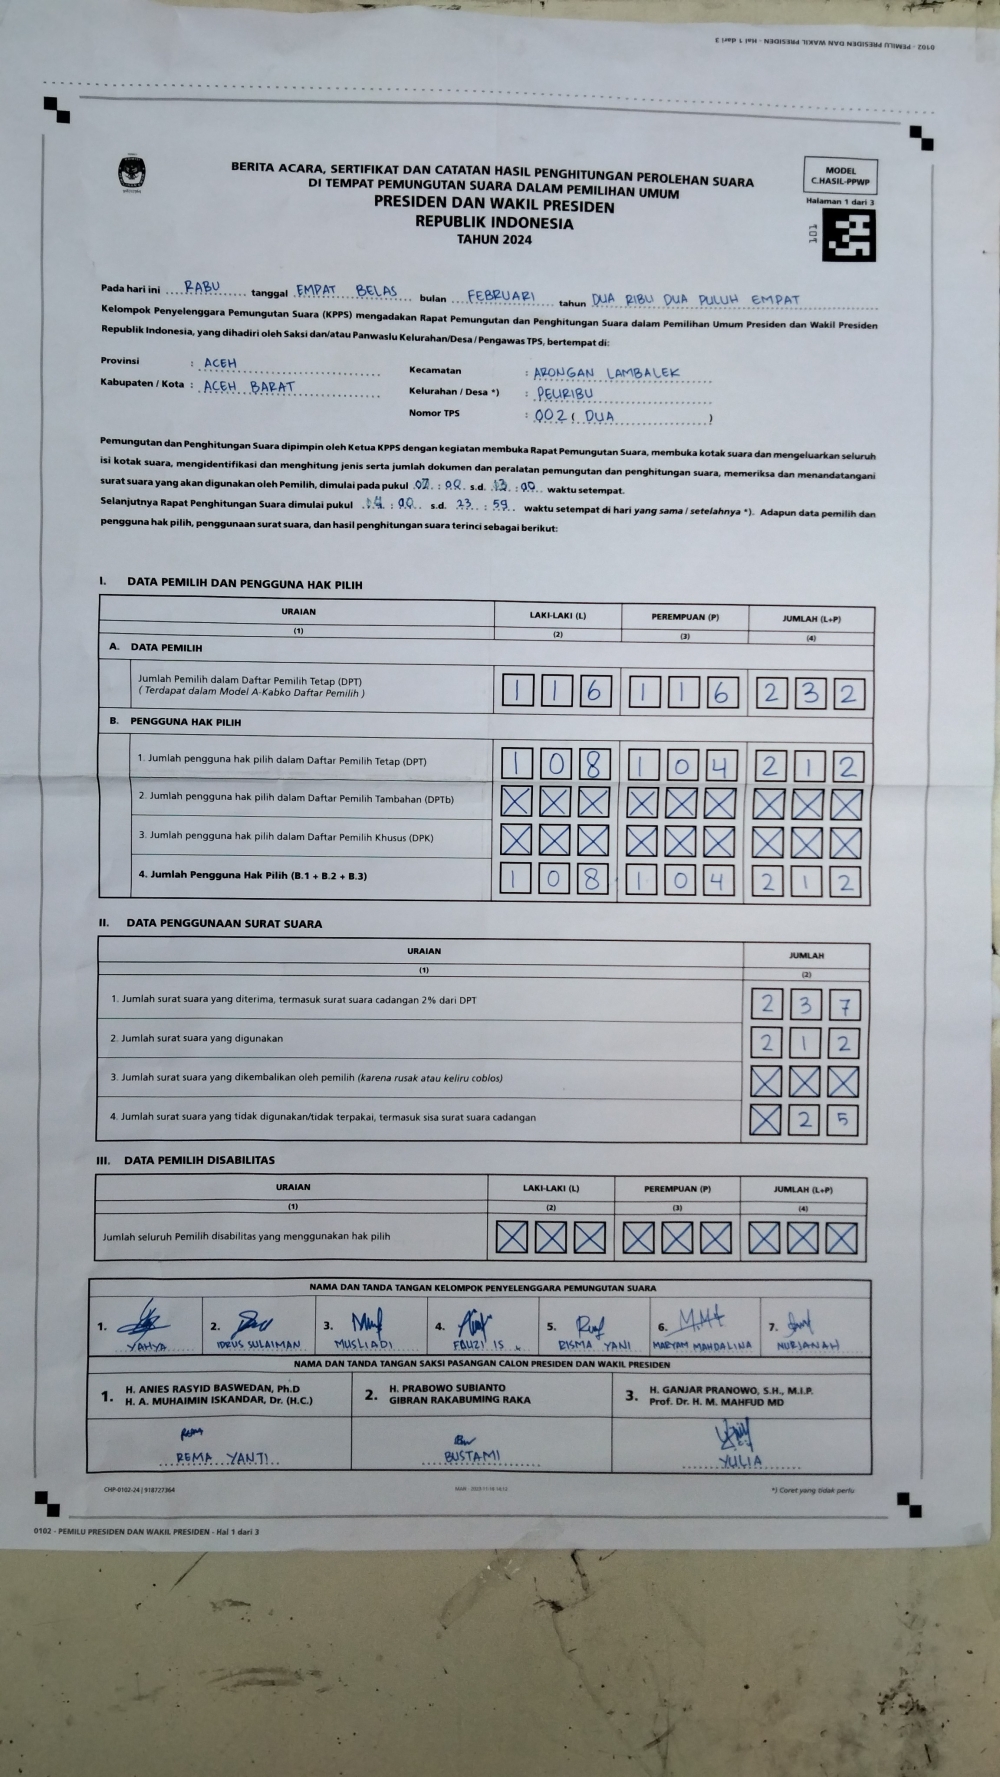 0102 - PEMILU PRESIDEN DAN WAKIL PRESIDEN - Hal 1 dari 3
BERITA ACARA, SERTIFIKAT DAN CATATAN HASIL PENGHITUNGAN PEROLEHAN SUARA
DI TEMPAT PEMUNGUTAN SUARA DALAM PEMILIHAN UMUM
PRESIDEN DAN WAKIL PRESIDEN
REPUBLIK INDONESIA
TAHUN 2024
MODEL
C.HASIL-PPWP
Halaman 1 dari 3
101
Pada hari ini RABU tanggal EMPAT BELAS bulan FEBRUARI tahun DUA RIBU DUA PULUH EMPAT
Kelompok Penyelenggara Pemungutan Suara (KPPS) mengadakan Rapat Pemungutan dan Penghitungan Suara dalam Pemilihan Umum Presiden dan Wakil Presiden
Republik Indonesia, yang dihadiri oleh Saksi dan/atau Panwaslu Kelurahan/Desa / Pengawas TPS, bertempat di:
Provinsi : ACEH
Kabupaten / Kota : ACEH BARAT
Kecamatan : ARONGAN LAMBALEK
Kelurahan / Desa *) : PEURIBU
Nomor TPS : 002 ( DUA )
Pemungutan dan Penghitungan Suara dipimpin oleh Ketua KPPS dengan kegiatan membuka Rapat Pemungutan Suara, membuka kotak suara dan mengeluarkan seluruh
isi kotak suara, mengidentifikasi dan menghitung jenis serta jumlah dokumen dan peralatan pemungutan dan penghitungan suara, memeriksa dan menandatangani
surat suara yang akan digunakan oleh Pemilih, dimulai pada pukul 07 : 00 s.d. 13 : 00 waktu setempat.
Selanjutnya Rapat Penghitungan Suara dimulai pukul 14 : 00 s.d. 23 : 59 waktu setempat di hari yang sama / setelahnya *). Adapun data pemilih dan
pengguna hak pilih, penggunaan surat suara, dan hasil penghitungan suara terinci sebagai berikut:
I. DATA PEMILIH DAN PENGGUNA HAK PILIH
URAIAN LAKI-LAKI (L) PEREMPUAN (P) JUMLAH (L+P)
(1) (2) (3) (4)
A. DATA PEMILIH
Jumlah Pemilih dalam Daftar Pemilih Tetap (DPT) 1 1 6 1 1 6 2 3 2
( Terdapat dalam Model A-Kabko Daftar Pemilih )
B. PENGGUNA HAK PILIH
1. Jumlah pengguna hak pilih dalam Daftar Pemilih Tetap (DPT) 1 0 8 1 0 4 2 1 2
2. Jumlah pengguna hak pilih dalam Daftar Pemilih Tambahan (DPTb) X X X X X X X X X
3. Jumlah pengguna hak pilih dalam Daftar Pemilih Khusus (DPK) X X X X X X X X X
4. Jumlah Pengguna Hak Pilih (B.1 + B.2 + B.3) 1 0 8 1 0 4 2 1 2
II. DATA PENGGUNAAN SURAT SUARA
URAIAN JUMLAH
(1) (2)
1. Jumlah surat suara yang diterima, termasuk surat suara cadangan 2% dari DPT 2 3 7
2. Jumlah surat suara yang digunakan 2 1 2
3. Jumlah surat suara yang dikembalikan oleh pemilih (karena rusak atau keliru coblos) X X X
4. Jumlah surat suara yang tidak digunakan/tidak terpakai, termasuk sisa surat suara cadangan X 2 5
III. DATA PEMILIH DISABILITAS
URAIAN LAKI-LAKI (L) PEREMPUAN (P) JUMLAH (L+P)
(1) (2) (3) (4)
Jumlah seluruh Pemilih disabilitas yang menggunakan hak pilih X X X X X X X X X
NAMA DAN TANDA TANGAN KELOMPOK PENYELENGGARA PEMUNGUTAN SUARA
1. 2. 3. 4. 5. 6. 7.
YAHYA IDRUS SULAIMAN MUSLIADI FAUZI IS RISMA YANI MARYAM MAHDALINA NURJANAH
NAMA DAN TANDA TANGAN SAKSI PASANGAN CALON PRESIDEN DAN WAKIL PRESIDEN
1. H. ANIES RASYID BASWEDAN, Ph.D
H. A. MUHAIMIN ISKANDAR, Dr. (H.C.)
2. H. PRABOWO SUBIANTO
GIBRAN RAKABUMING RAKA
3. H. GANJAR PRANOWO, S.H., M.I.P.
Prof. Dr. H. M. MAHFUD MD
REMA YANTI BUSTAMI YULIA
CHP-0102-24 | 918727364
*) Coret yang tidak perlu
0102 - PEMILU PRESIDEN DAN WAKIL PRESIDEN - Hal 1 dari 3